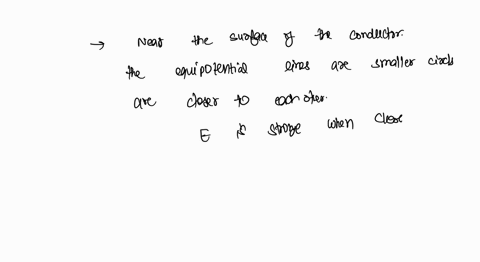 → Near the surface of the conductor.
the equipotential lines are smaller circls
are closer to each other.
E is strong when close